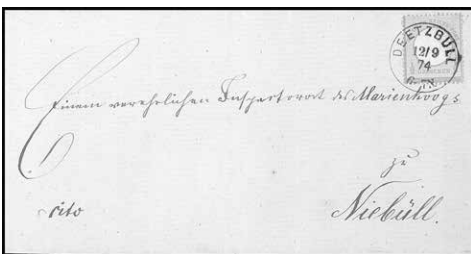 DEETZBÜLL
12/9
74
Einem verehrlichen Inspectorat des Marienkoogs
zu
cito
Niebüll.